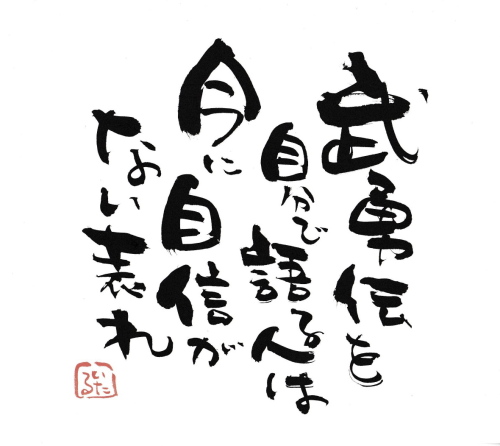 武勇伝を
自分で語る人は
今に自信が
ない表れ